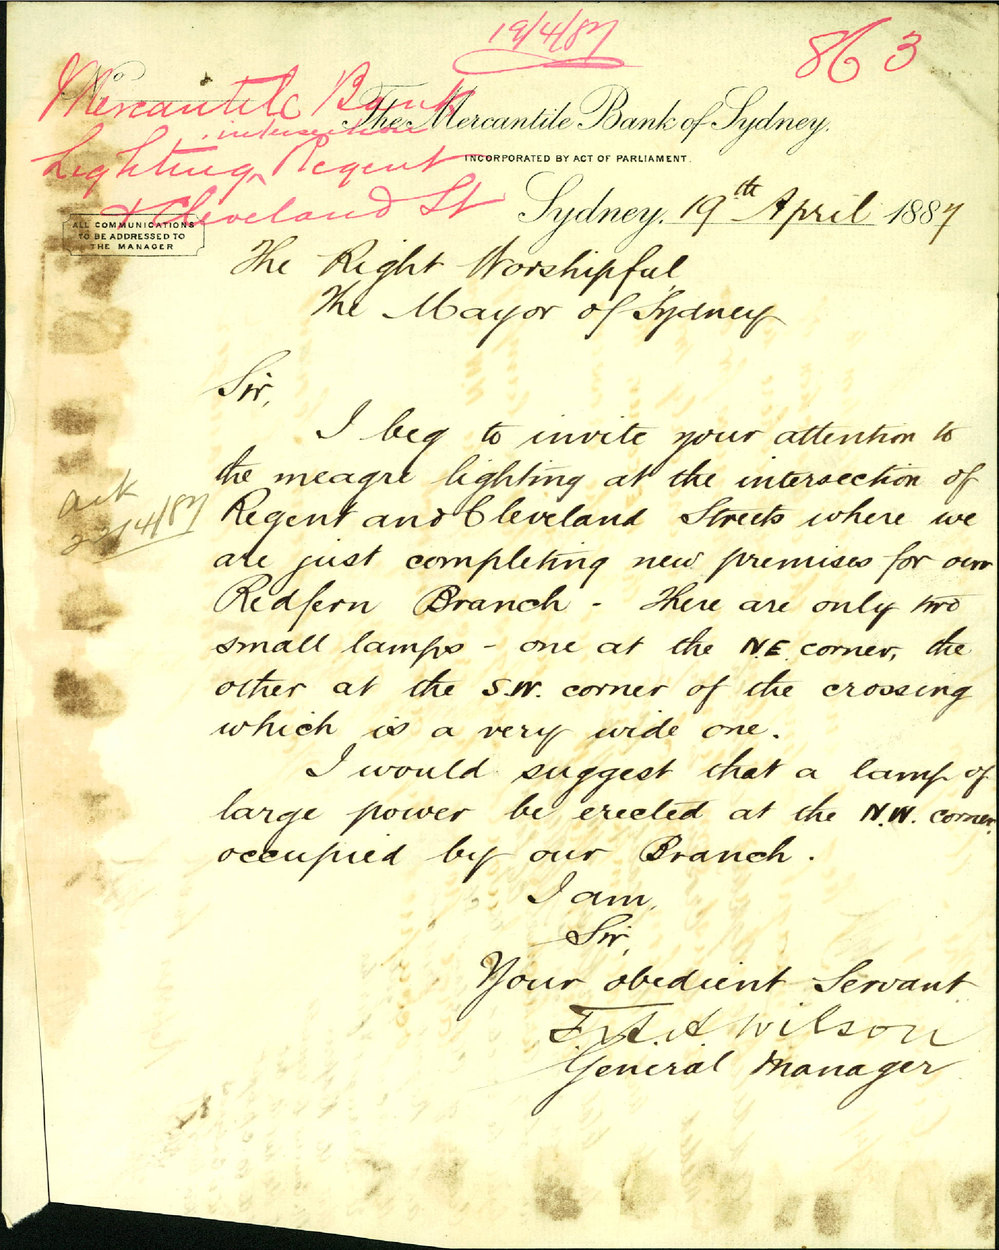 19/4/87
863
No
Mercantile Bank
intersection
Lighting Regent
& Cleveland St
The Mercantile Bank of Sydney.
INCORPORATED BY ACT OF PARLIAMENT.
ALL COMMUNICATIONS
TO BE ADDRESSED TO
THE MANAGER
Sydney, 19th April 1887
The Right Worshipful
The Mayor of Sydney
Sir,
I beg to invite your attention to
the meagre lighting at the intersection of
Regent and Cleveland Streets where we
are just completing new premises for our
Redfern Branch - There are only two
small lamps - one at the N.E. corner, the
other at the S.W. corner of the crossing
which is a very wide one.
I would suggest that a lamp of
large power be erected at the N.W. corner
occupied by our Branch.
I am,
Sir,
Your obedient Servant
F. A. A. Wilson
General Manager
Ack
22/4/87